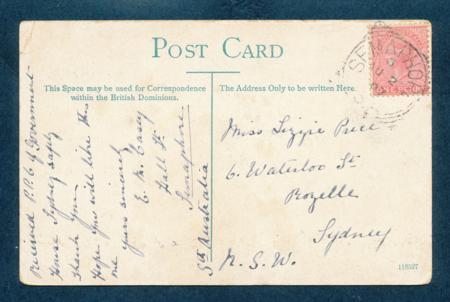 POST CARD
This Space may be used for Correspondence
within the British Dominions.
The Address Only to be written Here.
Received P.P.C of Government
House Sydney safely
thank you
Hope you will like this
one yours sincerely
E. M. Casey
Hall St
Semaphore
Sth Australia
Miss Lizzie Price
6. Waterloo St
Rozelle
Sydney
N. S. W.
118527